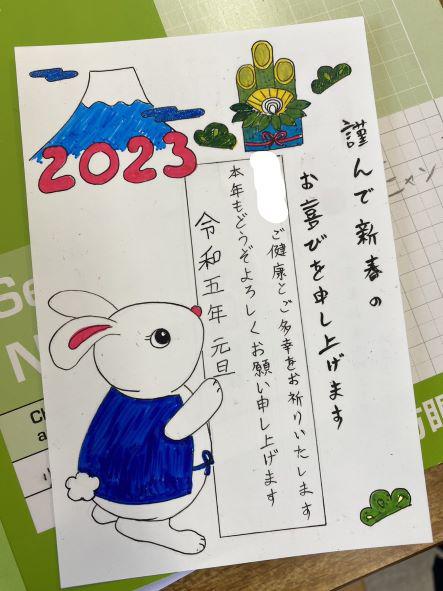 謹んで新春の
お喜びを申し上げます
ご健康とご多幸をお祈りいたします
本年もどうぞよろしくお願い申し上げます
令和五年 元旦
2023